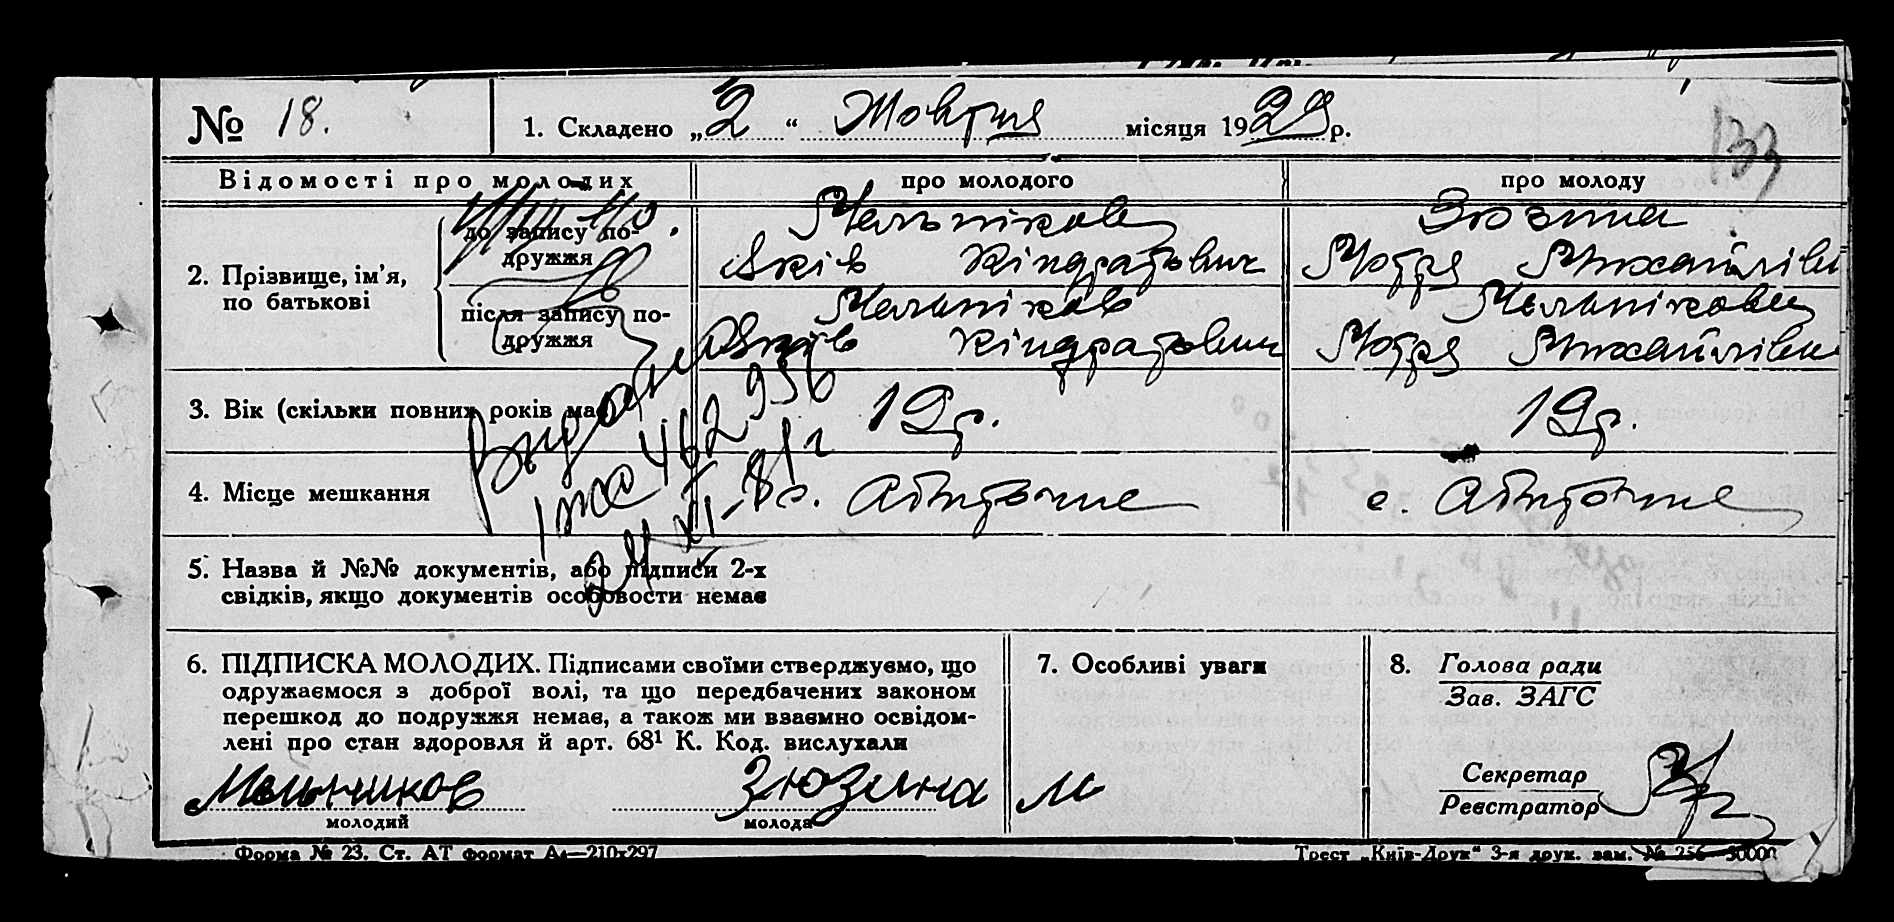 № 18.
1. Складено „2“ Жовтня місяця 1929 р.
133
Відомості про молодих
про молодого
про молоду
2. Прізвище, ім'я, по батькові
до запису подружжя
Мельніков
Яків Кіндратович
Зюзина
Мотря Михайлівн
після запису подружжя
Мельніков
Яків Кіндратович
Мельнікова
Мотря Михайлівн
3. Вік (скільки повних років має)
19 р.
19 р.
4. Місце мешкання
с.
с.
Видано
462936
24 XI-81 г
5. Назва й №№ документів, або підписи 2-х
свідків, якщо документів особовости немає
6. ПІДПИСКА МОЛОДИХ. Підписами своїми стверджуємо, що
одружаємося з доброї волі, та що передбачених законом
перешкод до подружжя немає, а також ми взаємно освідом-
лені про стан здоровля й арт. 68¹ К. Код. вислухали
Мельников
молодий
Зюзина
молода
7. Особливі уваги
8. Голова ради
Зав. ЗАГС
Секретар
Реєстратор
Форма № 23. Ст. АТ формат А₄—210×297
Трест „Київ-Друк“ 3-я друк. зам. № 256—50000